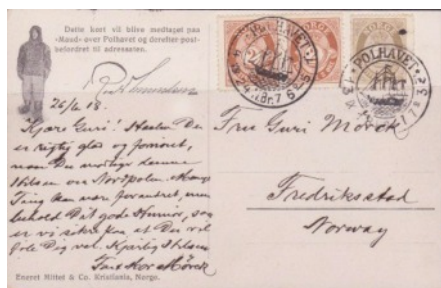 Dette kort vil blive medtaget paa
»Maud« over Polhavet og derefter post-
befordret til adressaten.
POLHAVET
POLHAVET
26/6 18.
Kjære Guri! Haaber Du
er rigtig glad og fornøiet,
naar Du modtager denne
hilsen om Nordpolen. Mange
Ting kan være forandret, men
behold Dit gode Humør, saa
er vi sikre paa at Du vil
føle Dig vel. Kjærlig hilsen
Mørck
Fru Guri Mørck
Fredriksstad
Norway
Eneret Mittet & Co. Kristiania, Norge.